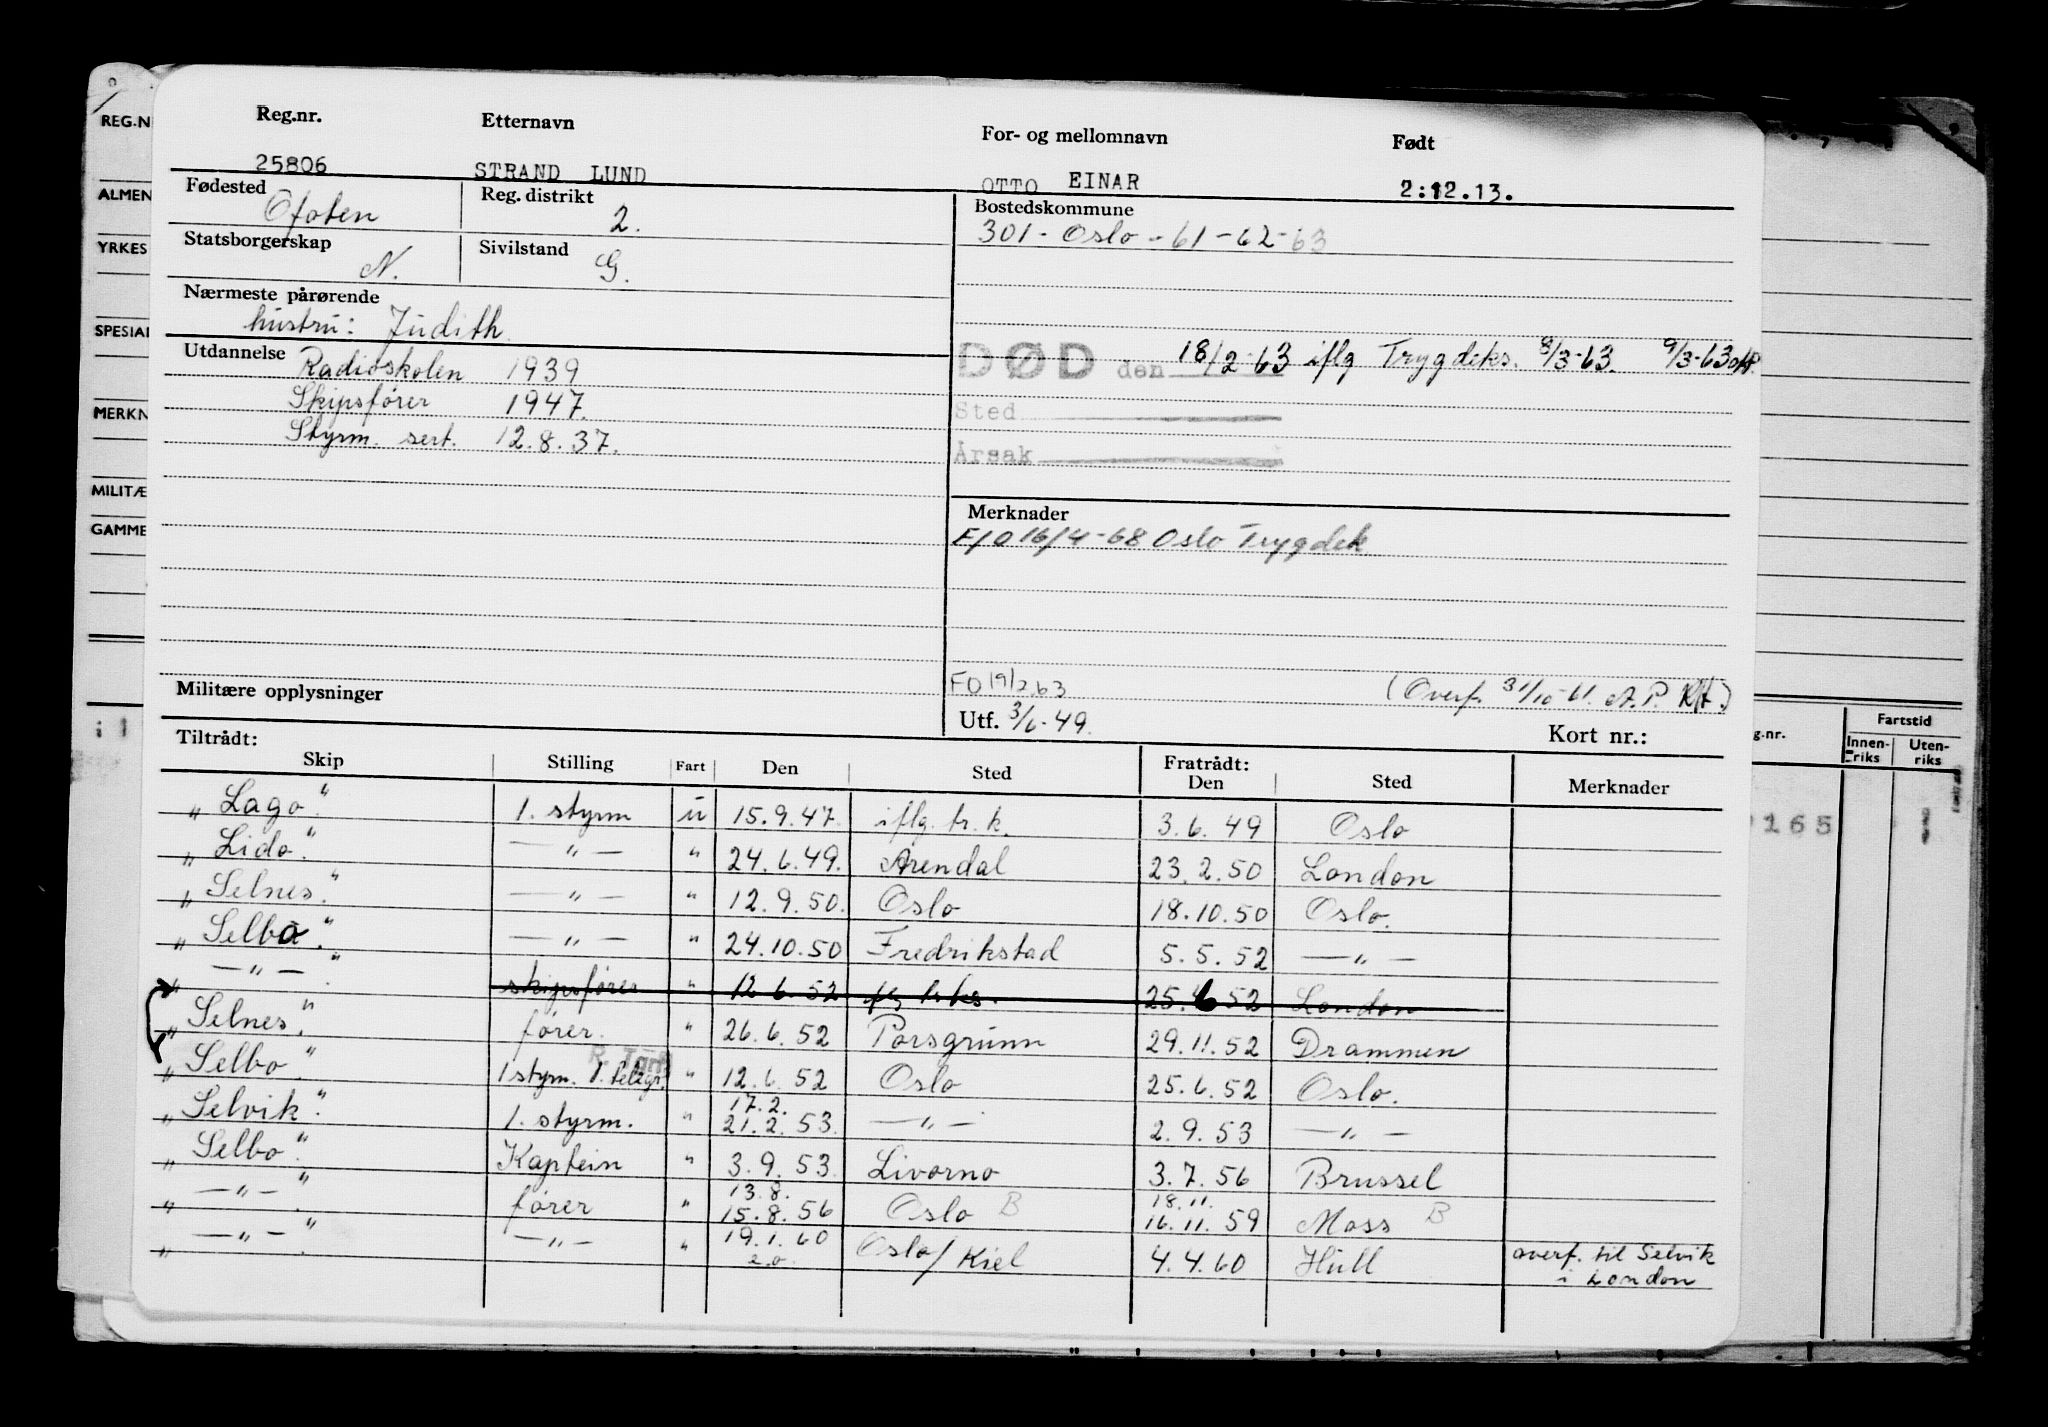 Reg.nr. Etternavn For- og mellomnavn Født
25806 STRAND LUND OTTO EINAR 2.12.13.
Fødested Ofoten Reg. distrikt 2.
Statsborgerskap N. Sivilstand G.
Nærmeste pårørende
hustru: Judith.
Utdannelse Radioskolen 1939
Skipsfører 1947.
Styrm. sert. 12.8.37.
Bostedskommune
301 - Oslo - 61 - 62 - 63
DØD den 18/2-63 iflg Trygdeks. 8/3-63. 9/3-63
Sted
Årsak
Merknader
F/O 16/4-68 Oslo Trygdek
Militære opplysninger
FO 19/2 63 (Overf. 31/10-61. A. P. )
Utf. 3/6-49. Kort nr.:
Tiltrådt: Fratrådt:
Skip Stilling Fart Den Sted Den Sted Merknader
„ Lago." 1. styrm u 15.9.47. iflg. tr. k. 3.6.49 Oslo
„ Lido." — „ — " 24.6.49. Arendal 23.2.50 London
„ Selnes." — „ — " 12.9.50. Oslo 18.10.50 Oslo.
„ Selbo." — „ — " 24.10.50 Fredrikstad 5.5.52 — „ —
„ — „ — ." skipsfører " 12.6.52 25.6.52 London
„ Selnes." fører. " 26.6.52 Porsgrunn 29.11.52 Drammen
„ Selbo." 1 styrm. 1. telegr. " 12.6.52 Oslo 25.6.52 Oslo.
„ Selvik." 1. styrm. " 17.2. 21.2.53. — „ — 2.9.53 — „ —
„ Selbo." Kaptein " 3.9.53. Livorno 3.7.56 Brussel
„ — „ — ." fører " 13.8. 15.8.56 Oslo B 18.11. 16.11.59 Moss B
„ — „ — ." — „ — " 19.1.60 Oslo/Kiel 4.4.60 Hull overf. til Selvik
i London
REG.N
ALMEN
YRKES
SPESIAL
MERKN
MILITÆ
GAMME
g.nr. Fartstid
Innen-riks Uten-riks
165